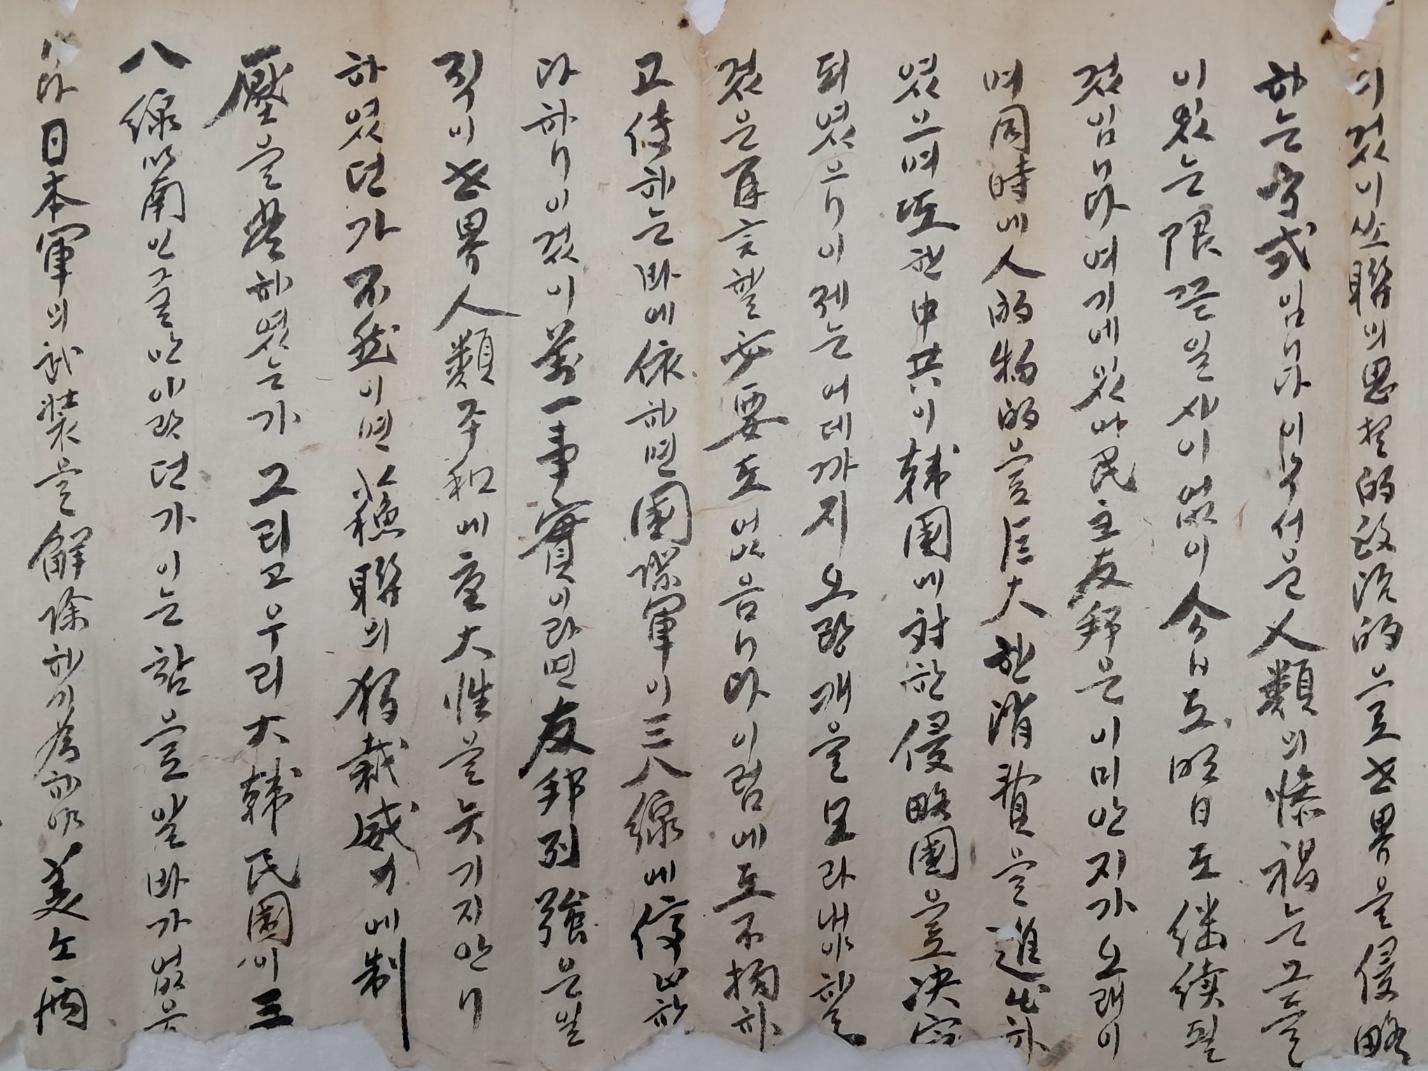 이것이 쏘聯의 思想的 政治的으로 世界을 侵略
하는 方式임니다 이 方式은 人類의 慘禍는 그들
이 있는 限 끈일 사이 없이 今日도 明日도 继续될
것임니다 여기에 있어 民主友邦은 이미 안지가 오래이
며 同時에 人的 物的으로 巨大한 消費을 進出하
였으며 또한 中共이 韓國에 対한 侵略國으로 决定
되였으니 이제는 어데까지 오랑캐을 모라내야 할
것은 再言할 必要도 없음니다 이럼에도 不拘하
고 傳하는 바에 依하면 國際軍이 三八線에 停止한
다 하니 이것이 萬一 事實이라면 友邦列强은 번
직이 世界人類 주和에 重大性을 늣기지 안니
하였던가 不然이면 쏘聯의 독裁威力에 制
壓을 當하였는가 그리고 우리 大韓民國이 三
八線 以南인줄만 아랏던가 이는 참으로 알바가 없는
日本軍의 武裝을 解除하기 爲하야 美ㅗ 両